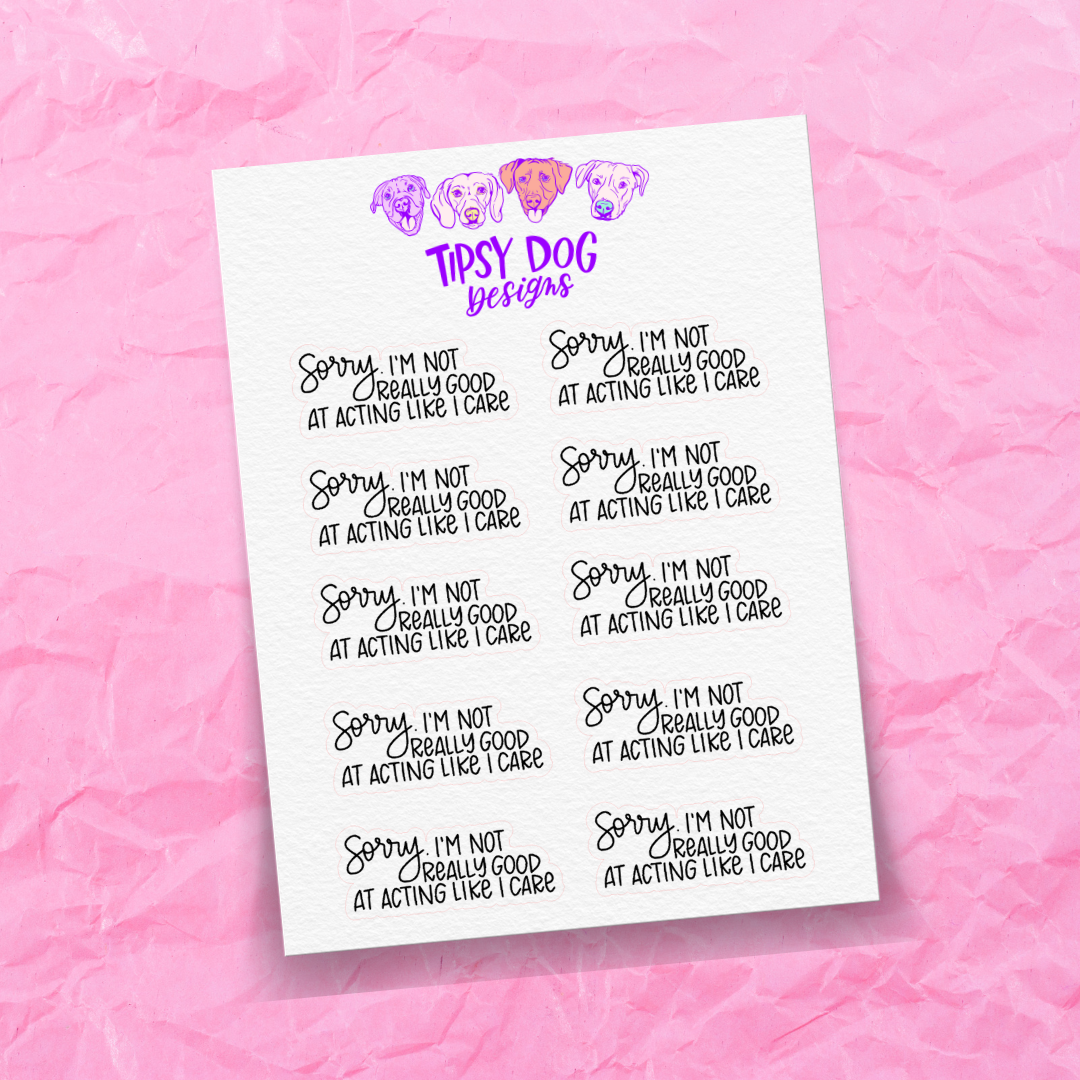 TIPSY DOG
Designs
Sorry. I'M NOT
REALLY GOOD
AT ACTING LIKE I CARE
Sorry. I'M NOT
REALLY GOOD
AT ACTING LIKE I CARE
Sorry. I'M NOT
REALLY GOOD
AT ACTING LIKE I CARE
Sorry. I'M NOT
REALLY GOOD
AT ACTING LIKE I CARE
Sorry. I'M NOT
REALLY GOOD
AT ACTING LIKE I CARE
Sorry. I'M NOT
REALLY GOOD
AT ACTING LIKE I CARE
Sorry. I'M NOT
REALLY GOOD
AT ACTING LIKE I CARE
Sorry. I'M NOT
REALLY GOOD
AT ACTING LIKE I CARE
Sorry. I'M NOT
REALLY GOOD
AT ACTING LIKE I CARE
Sorry. I'M NOT
REALLY GOOD
AT ACTING LIKE I CARE